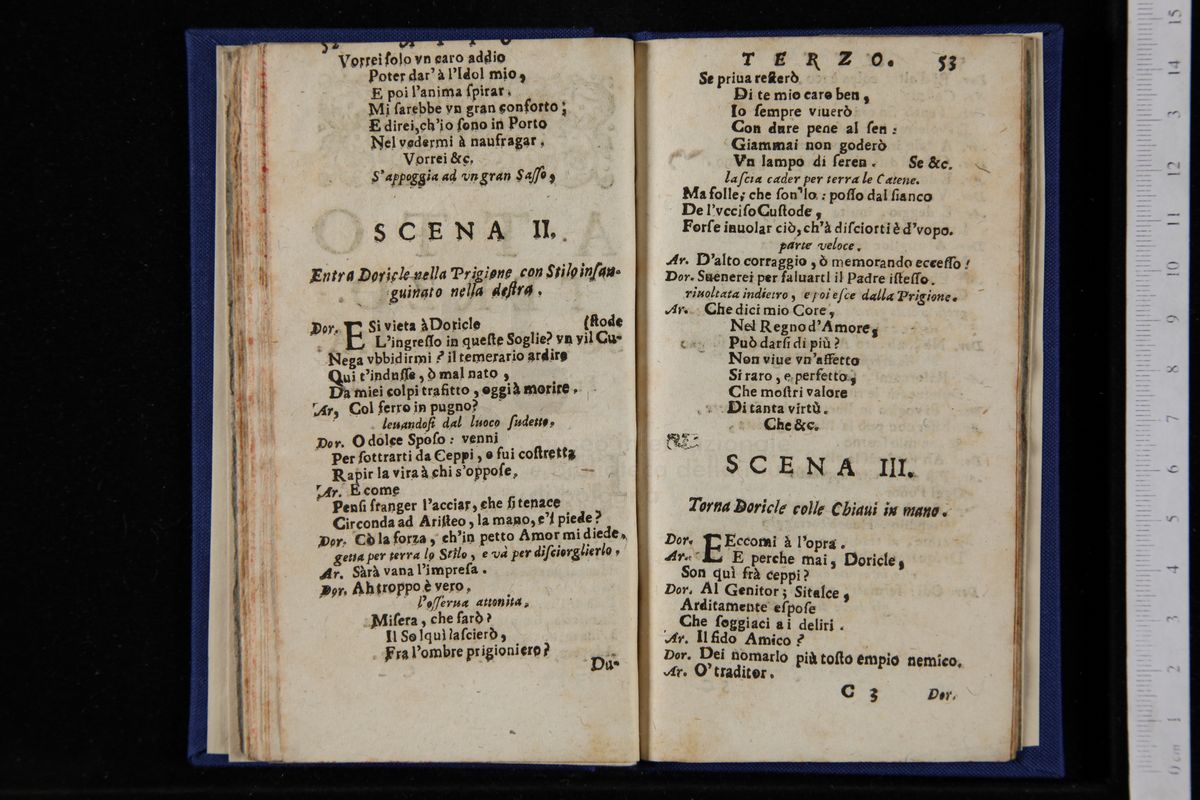 Vorrei ſolo vn caro addio
Poter dar' à l'Idol mio,
E poi l'anima ſpirar.
Mi ſarebbe vn gran conforto;
E direi, ch'io ſono in Porto
Nel vedermi à naufragar.
Vorrei &c.
S'appoggia ad vn gran Saſſo,
SCENA II.
Entra Doricle nella Prigione con Stilo inſan-
guinato nella deſtra.
Dor. E Si vieta à Doricle (ſtode
L'ingreſſo in queſte Soglie? vn vil Cu-
Nega vbbidirmi? il temerario ardire
Qui t'induſſe, ò mal nato,
Da miei colpi trafitto, oggi à morire.
Ar, Col ferro in pugno?
leuandoſi dal luoco ſudetto,
Dor. O dolce Spoſo: venni
Per ſottrarti da Ceppi, e fui coſtretta
Rapir la vira à chi s'oppoſe,
Ar. E come
Penſi franger l'acciar, che ſi tenace
Circonda ad Ariſteo, la mano, e'l piede?
Dor. Cò la forza, ch'in petto Amor mi diede,
getta per terra lo Stilo, e và per diſciorglierlo,
Ar. Sàrà vana l'impreſa.
Dor. Ah troppo è vero,
l'oſſerua attonita,
Miſera, che farò?
Il Sol quì laſcierò,
Fra l'ombre prigioniero?
Du-
TERZO. 53
Se priua reſterò
Di te mio caro ben,
Io ſempre viuerò
Con dure pene al ſen:
Giammai non goderò
Vn lampo di ſeren. Se &c.
laſcia cader per terra le Catene.
Ma folle; che ſon'Io: poſſo dal fianco
De l'vcciſo Cuſtode,
Forſe inuolar ciò, ch'à diſciorti è d'vopo.
parte veloce.
Ar. D'alto corraggio, ò memorando ecceſſo!
Dor. Suenerei per ſaluarti il Padre iſteſſo.
riuoltata indietro, e poi eſce dalla Prigione.
Ar. Che dici mio Core,
Nel Regno d'Amore,
Può darſi di più?
Non viue vn'affetto
Si raro, e perfetto,
Che moſtri valore
Di tanta virtù.
Che &c.
SCENA III.
Torna Doricle colle Chiaui in mano.
Dor. E Eccomi à l'opra.
Ar. E perche mai, Doricle,
Son quì frà ceppi?
Dor. Al Genitor; Sitalce,
Arditamente eſpoſe
Che ſoggiaci a i deliri.
Ar. Il fido Amico?
Dor. Dei nomarlo più toſto empio nemico.
Ar. O' traditor.
C 3 Dor.